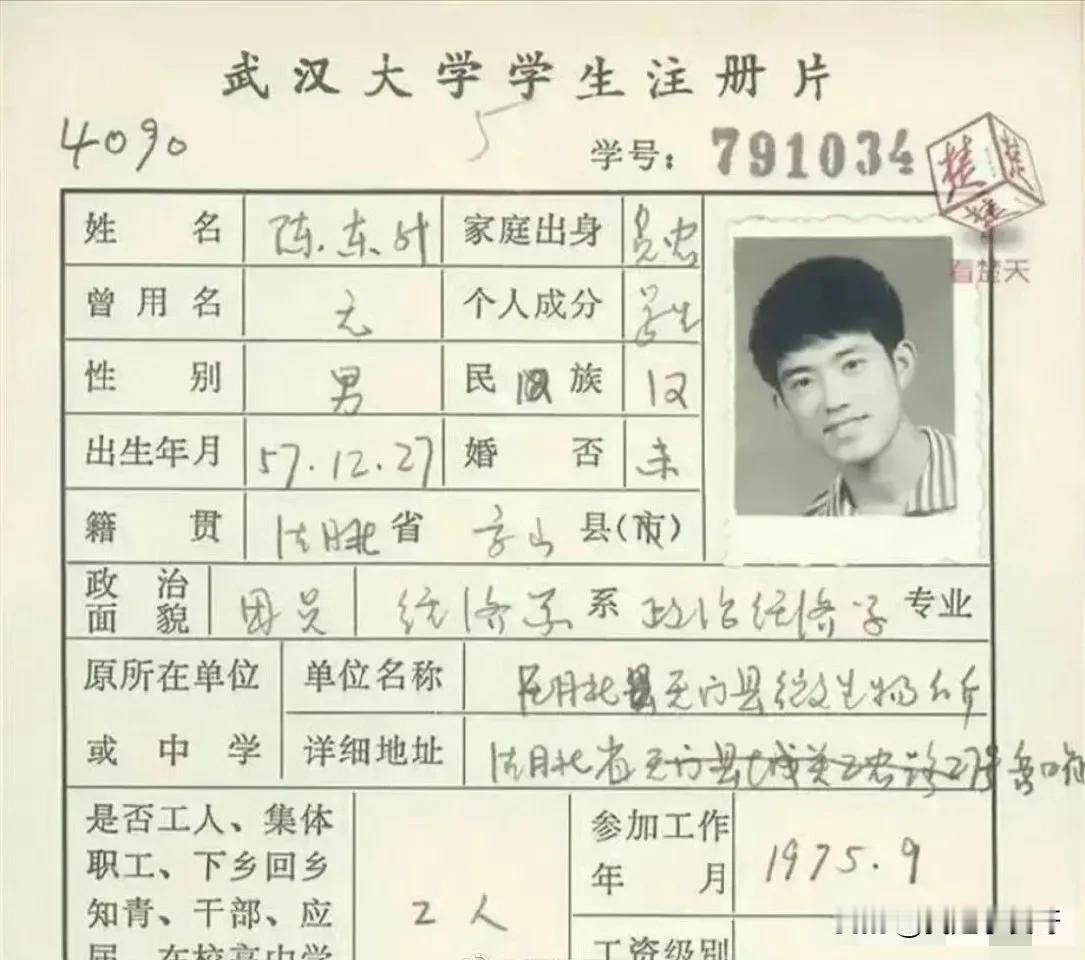 武汉大学学生注册片
4090 5 学号：791034
姓名 陈东升 家庭出身
曾用名 无 个人成分 学生
性别 男 民族 汉
出生年月 57.12.27 婚否 未
籍贯 湖北省 京山县(市)
政治面貌 团员 经济学系 政治经济学专业
原所在单位或中学 单位名称 天门县微生物
详细地址 湖北省天门县城关
是否工人、集体职工、下乡回乡知青、干部、应届、在校高中学 工人 参加工作年月 1975.9
工资级别
看楚天